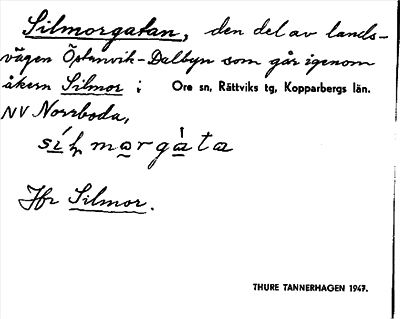 Silmorgatan, den del av lands-
vägen Östanvik-Dalbyn som går igenom
åkern Silmor i Ore sn, Rättviks tg, Kopparbergs län.
NV Norrboda,
Jfr Silmor.
THURE TANNERHAGEN 1947.